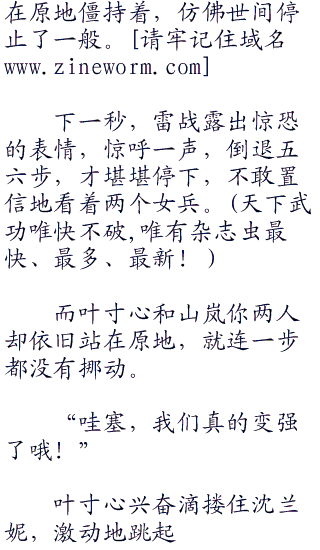 在原地僵持着，仿佛世间停
止了一般。[请牢记住域名
www.zineworm.com]
下一秒，雷战露出惊恐
的表情，惊呼一声，倒退五
六步，才堪堪停下，不敢置
信地看着两个女兵。(天下武
功唯快不破,唯有杂志虫最
快、最多、最新！ )
而叶寸心和山岚你两人
却依旧站在原地，就连一步
都没有挪动。
“哇塞，我们真的变强
了哦！”
叶寸心兴奋滴搂住沈兰
妮，激动地跳起